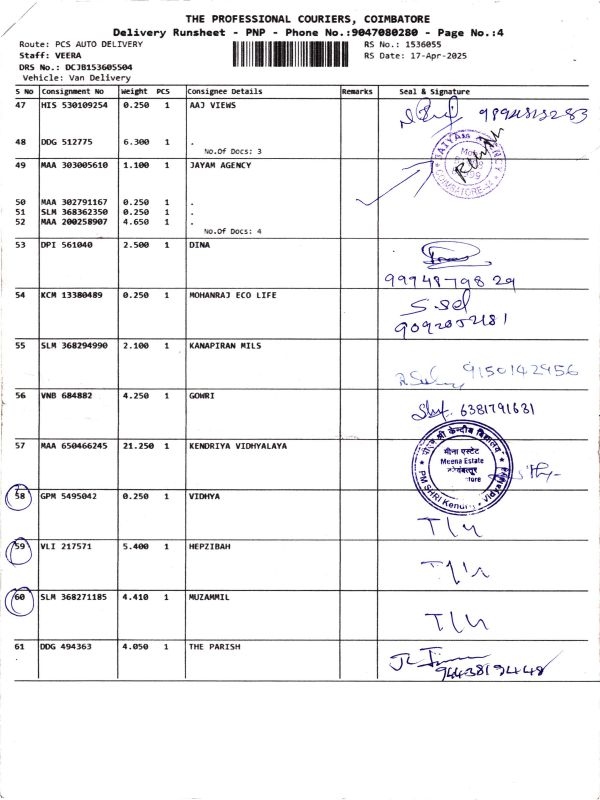 THE PROFESSIONAL COURIERS, COIMBATORE
Delivery Runsheet - PNP - Phone No.:9047080280 - Page No.:4
Route: PCS AUTO DELIVERY RS No.: 1536055
Staff: VEERA RS Date: 17-Apr-2025
DRS No.: DCJB153605504
Vehicle: Van Delivery
S No Consignment No Weight PCS Consignee Details Remarks Seal & Signature
47 HIS 530109254 0.250 1 AAJ VIEWS
48 DDG 512775 6.300 1 .
No.Of Docs: 3
49 MAA 303005610 1.100 1 JAYAM AGENCY
COIMBATORE
50 MAA 302791167 0.250 1 .
51 SLM 368362350 0.250 1 .
52 MAA 200258907 4.650 1 .
No.Of Docs: 4
53 DPI 561040 2.500 1 DINA
54 KCM 13380489 0.250 1 MOHANRAJ ECO LIFE
55 SLM 368294990 2.100 1 KANAPIRAN MILS
9150142956
56 VNB 684882 4.250 1 GOWRI
6381791631
57 MAA 650466245 21.250 1 KENDRIYA VIDHYALAYA
पी.एम श्री केन्द्रीय विद्यालय
मीना एस्टेट
Meena Estate
कोयंबत्तूर
PM SHRI Kendriya Vidyalaya
58 GPM 5495042 0.250 1 VIDHYA
59 VLI 217571 5.400 1 HEPZIBAH
60 SLM 368271185 4.410 1 MUZAMMIL
61 DDG 494363 4.050 1 THE PARISH